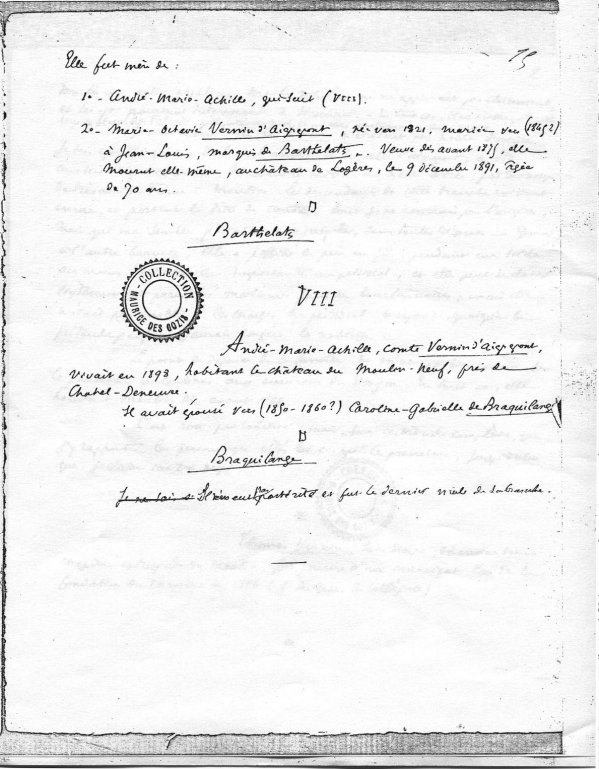 15
Elle fut mère de :
1o- André-Marie-Achille, qui suit (VIII).
2o- Marie-Octavie Vernin d'Aigrepont, née vers 1821, mariée vers (1845?)
à Jean-Louis, marquis de Barthelats. Veuve dès avant 1875, elle
mourut elle-même, au château de Logères, le 9 décembre 1891, âgée
de 70 ans.
Barthelats
COLLECTION
MAURICE DES GOZIS
VIII
André-Marie-Achille, comte Vernin d'Aigrepont,
vivait en 1893, habitant le château du Moulin-Neuf, près de
Chatel-Deneuvre.
Il avait épousé vers (1850-1860?) Caroline-Gabrielle de Braquilange
Braquilange
Je ne sais s Il n'en eut pas postérité et fut le dernier mâle de sa branche.